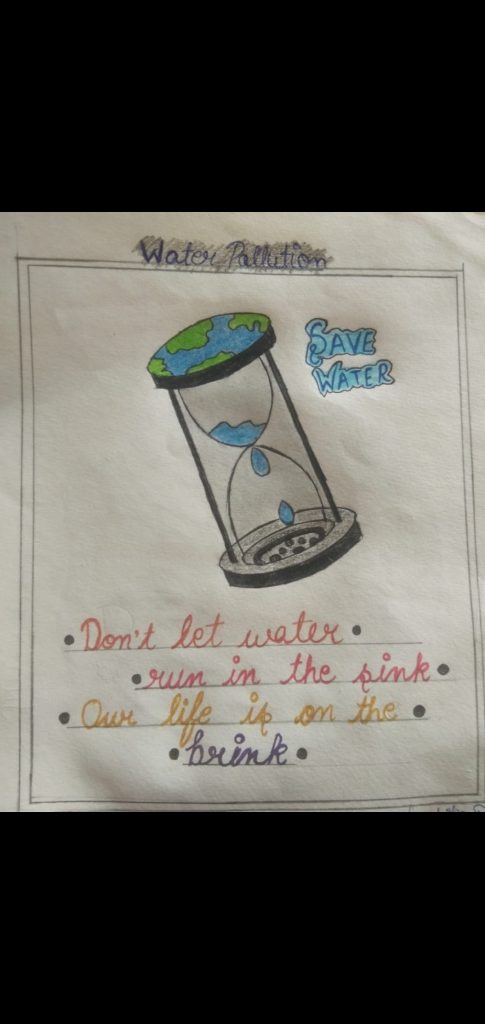 Water Pollution
SAVE
WATER
Don't let water
run in the sink
Our life is on the
brink